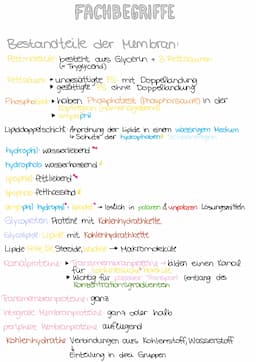 FACHBEGRIFFE
Bestandteile der Membran:
Fettmoleküle: besteht aus Glycerin + 3 Fettsäuren
(= Triglycerid)
Fettsäuren • ungesättigte FS mit Doppelbindung
• gesättigte FS ohne Doppelbindung
Phospholipid • haben Phosphatrest (Phosphorsäure) in der
• amphiphil
Lipiddoppelschicht: Anordnung der Lipide in einem wässrigem Medium
→ Schutz der hydrophoben
hydrophil: wasserliebend
hydrophob: wasserhassend
lipophil: fettliebend
lipophob: fetthassend
amphiphil: hydrophil + lipophil → löslich in polaren & unpolaren Lösungsmitteln
Glycoprotein: Proteine mit Kohlenhydratkette
Glycolipide: Lipide mit Kohlenhydratkette
Lipide: Steroide, Wachse → Makromoleküle
Kanalproteine • Transmembranproteine → bilden einen Kanal
für Moleküle
• Wichtig für passiver Transport (entlang des
Konzentrationsgradienten
Transmembranproteine: ganz
integrale Membranproteine: ganz oder halb
periphere Membranproteine: aufliegend
Kohlenhydrate: Verbindungen aus Kohlenstoff, Wasserstoff
→ Einteilung in drei Gruppen